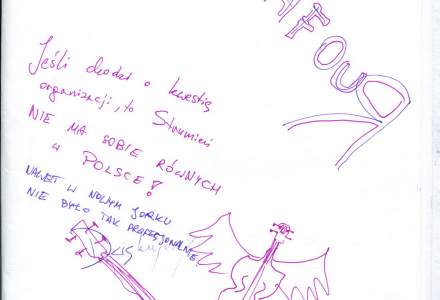 Jeśli chodzi o kwestię
organizacji, to Strumień
NIE MA SOBIE RÓWNYCH
W POLSCE!
NAWET W NOWYM JORKU
NIE BYŁO TAK PROFESJONALNIE